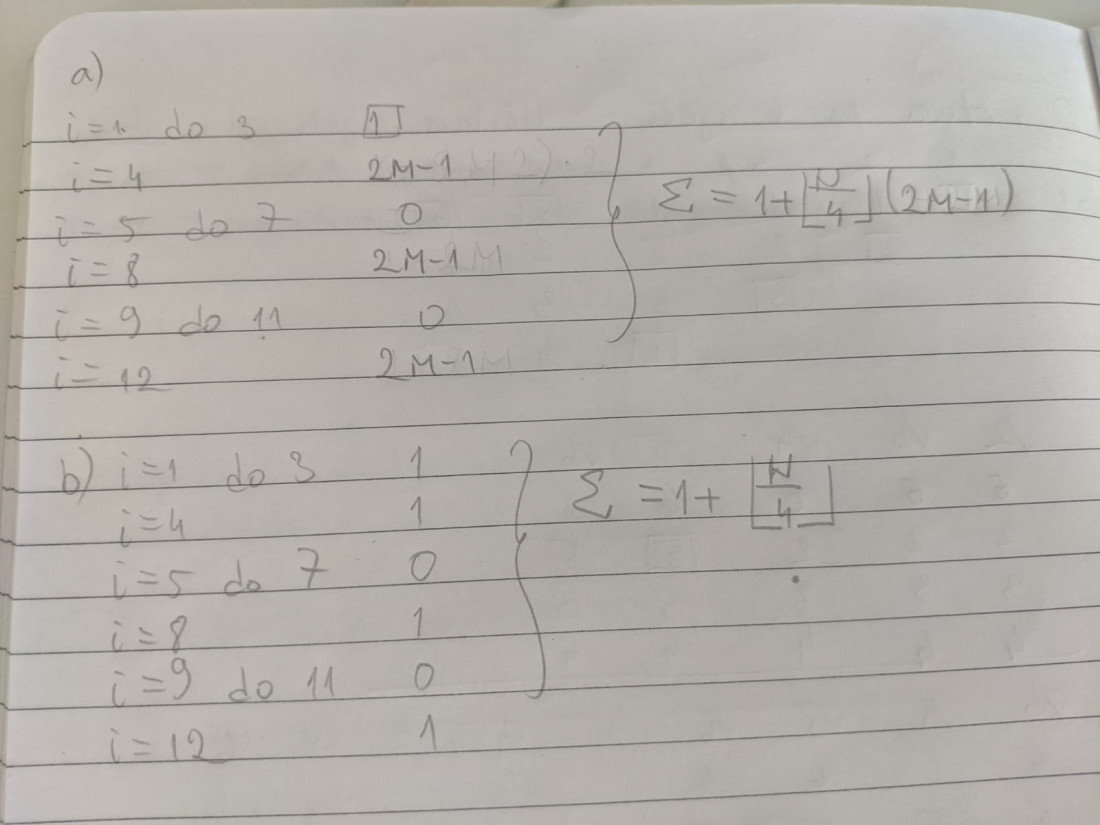 a)
i=1 do 3 1
i=4 2M-1
i=5 do 7 0
i=8 2M-1
i=9 do 11 0
i=12 2M-1
Σ = 1+⌊N/4⌋(2M-1)
b) i=1 do 3 1
i=4 1
i=5 do 7 0
i=8 1
i=9 do 11 0
i=12 1
Σ = 1+ ⌊N/4⌋